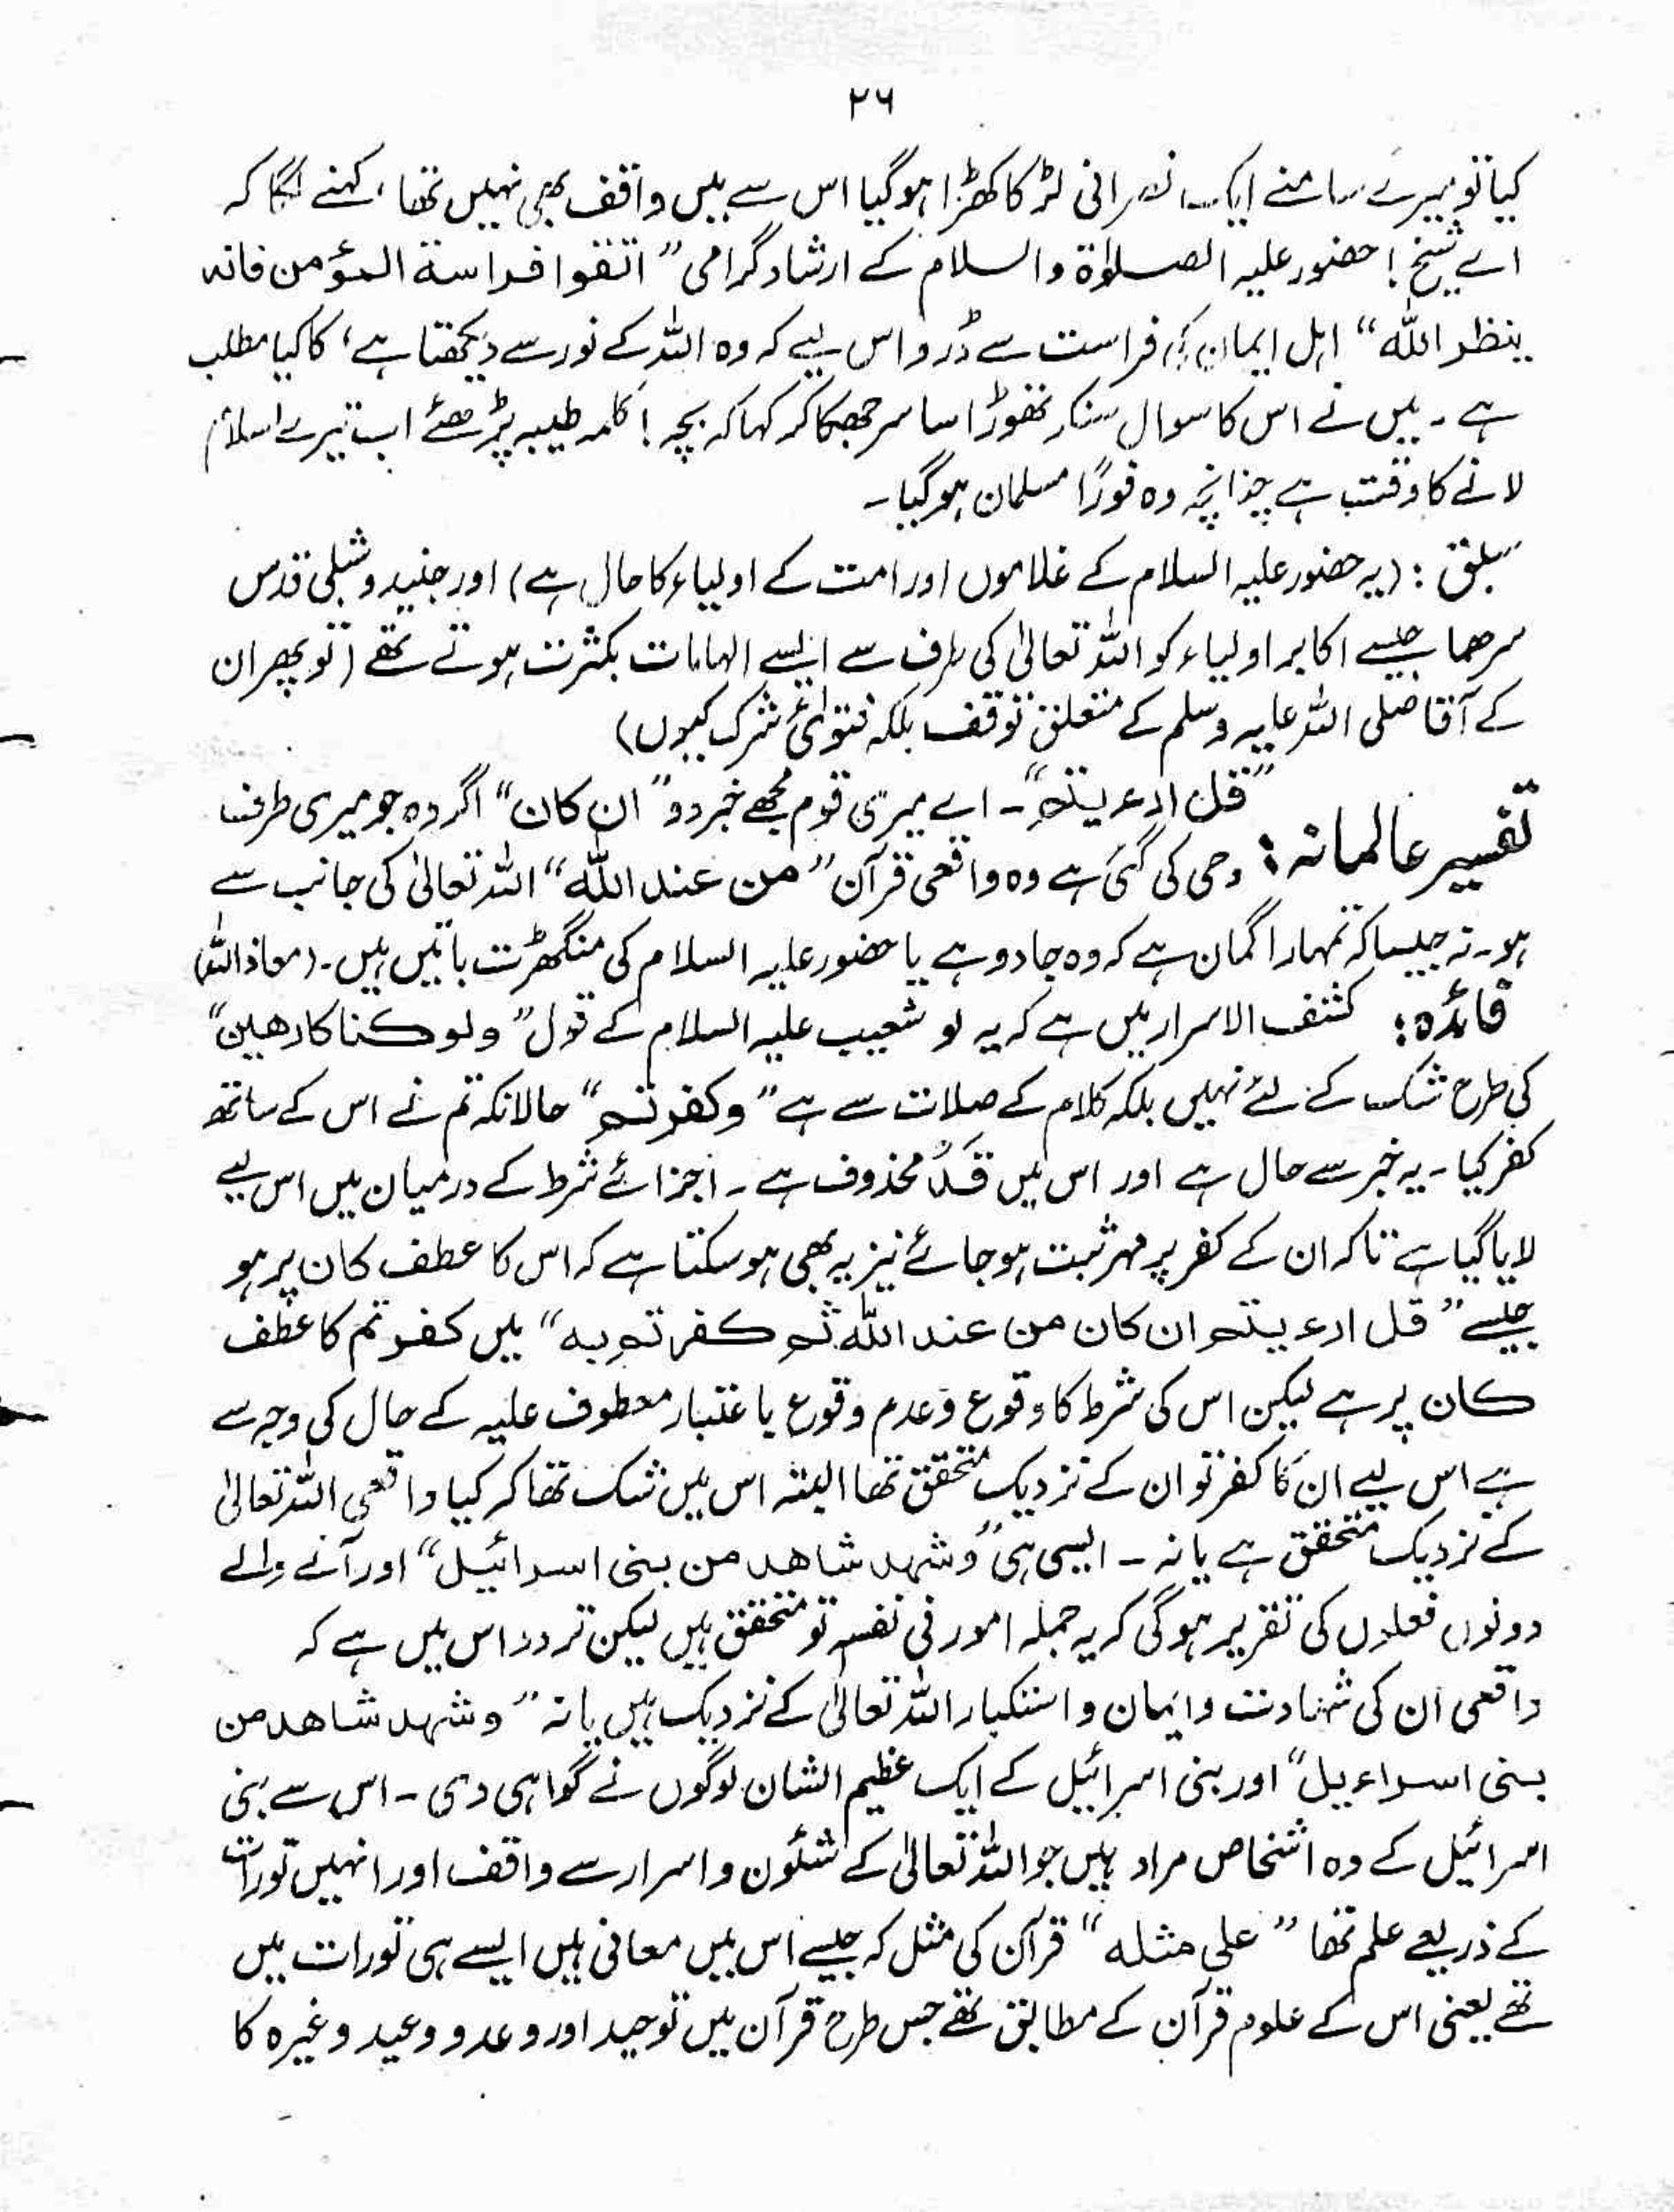 ۲۶
کیا تو میرے سامنے ایک نصرانی لڑکا کھڑا ہوگیا اس سے میں واقف بھی نہیں تھا، کہنے لگا کہ
اے شیخ! حضور علیہ الصلوٰۃ والسلام کے ارشاد گرامی ”اتقوا فراسۃ المؤمن فانہ
ینظر اللہ“ اہل ایمان کی فراست سے ڈرو اس لیے کہ وہ اللہ کے نور سے دیکھتا ہے، کا کیا مطلب
ہے۔ میں نے اس کا سوال سنکر تھوڑا سا سر جھکا کر کہا کہ بچہ! کلمہ طیبہ پڑھئے اب تیرے اسلام
لانے کا وقت ہے چنانچہ وہ فوراً مسلمان ہوگیا۔
سبق: (یہ حضور علیہ السلام کے غلاموں اور امت کے اولیاء کا حال ہے) اور جنید و شبلی قدس
سرھما جیسے اکابر اولیاء کو اللہ تعالیٰ کی طرف سے ایسے الہامات بکثرت ہوتے تھے (تو پھر ان
کے آقا صلی اللہ علیہ وسلم کے متعلق توقف بلکہ فتوائے شرک کیوں)
تفسیر عالمانہ: ”قل ارءیتم“۔ اے میری قوم مجھے خبر دو ”ان کان“ اگر وہ جو میری طرف
وحی کی گئی ہے وہ واقعی قرآن ”من عند اللہ“ اللہ تعالیٰ کی جانب سے
ہو۔ نہ جیسا کہ تمہارا گمان ہے کہ وہ جادو ہے یا حضور علیہ السلام کی منگھڑت باتیں ہیں۔ (معاذ اللہ)
فائدہ: کشف الاسرار میں ہے کہ یہ لو شعیب علیہ السلام کے قول ”ولو کنا کارھین“
کی طرح شک کے لئے نہیں بلکہ کلام کے صلات سے ہے ”وکفرتم“ حالانکہ تم نے اس کے ساتھ
کفر کیا۔ یہ خبر سے حال ہے اور اس میں قَدْ محذوف ہے۔ اجزائے شرط کے درمیان میں اس لیے
لایا گیا ہے تاکہ ان کے کفر پر مہر ثبت ہو جائے نیز یہ بھی ہو سکتا ہے کہ اس کا عطف کان پر ہو
جیسے ”قل ارءیتم ان کان من عند اللہ ثم کفرتم بہ“ میں کفرتم کا عطف
کان پر ہے لیکن اس کی شرط کا وقوع و عدم وقوع باعتبار معطوف علیہ کے حال کی وجہ سے
ہے اس لیے ان کا کفر تو ان کے نزدیک متحقق تھا البتہ اس میں شک تھا کہ کیا واقعی اللہ تعالیٰ
کے نزدیک متحقق ہے یا نہ۔ ایسی ہی ”وشہد شاھد من بنی اسرائیل“ اور آنے والے
دونوں فعلوں کی تقریر ہوگی کہ یہ جملہ امور فی نفسہ تو متحقق ہیں لیکن تردد اس میں ہے کہ
واقعی ان کی شہادت و ایمان و استکبار اللہ تعالیٰ کے نزدیک ہیں یا نہ ”وشہد شاھد من
بنی اسراءیل“ اور بنی اسرائیل کے ایک عظیم الشان لوگوں نے گواہی دی۔ اس سے بنی
اسرائیل کے وہ اشخاص مراد ہیں جو اللہ تعالیٰ کے شئون و اسرار سے واقف اور انہیں تورات
کے ذریعے علم تھا ”علی مثلہ“ قرآن کی مثل کہ جیسے اس میں معانی ہیں ایسے ہی تورات میں
تھے یعنی اس کے علوم قرآن کے مطابق تھے جس طرح قرآن میں توحید اور وعد و وعید وغیرہ کا